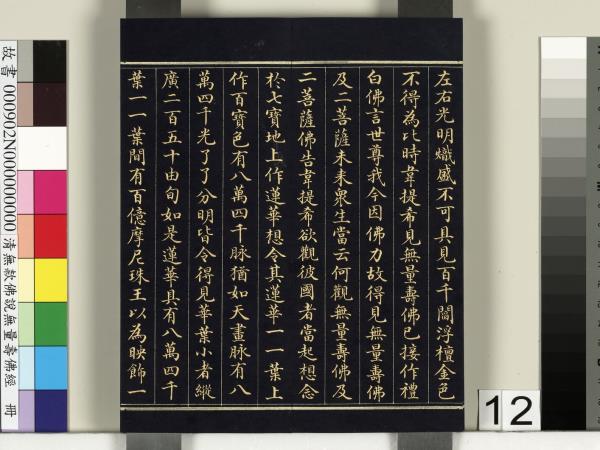 左右光明熾盛不可具見百千閻浮檀金色
不得為比時韋提希見無量壽佛已接作禮
白佛言世尊我今因佛力故得見無量壽佛
及二菩薩未来眾生當云何觀無量壽佛及
二菩薩佛告韋提希欲觀彼國者當起想念
於七寶地上作蓮華想令其蓮華一一葉上
作百寶色有八萬四千脉猶如天畫脉有八
萬四千光了了分明皆令得見華葉小者縱
廣二百五十由旬如是蓮華具有八萬四千
葉一一葉間有百億摩尼珠王以為映飾一
故書 000902N000000000 清無款佛說無量壽佛經 冊
12